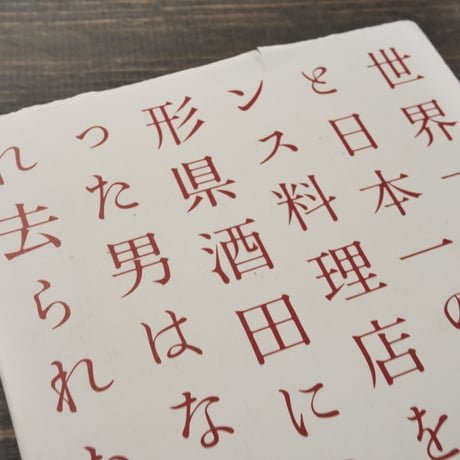 世界一
と日本一の
ンス料理店を
形県酒田に
った男はな
れ去られた